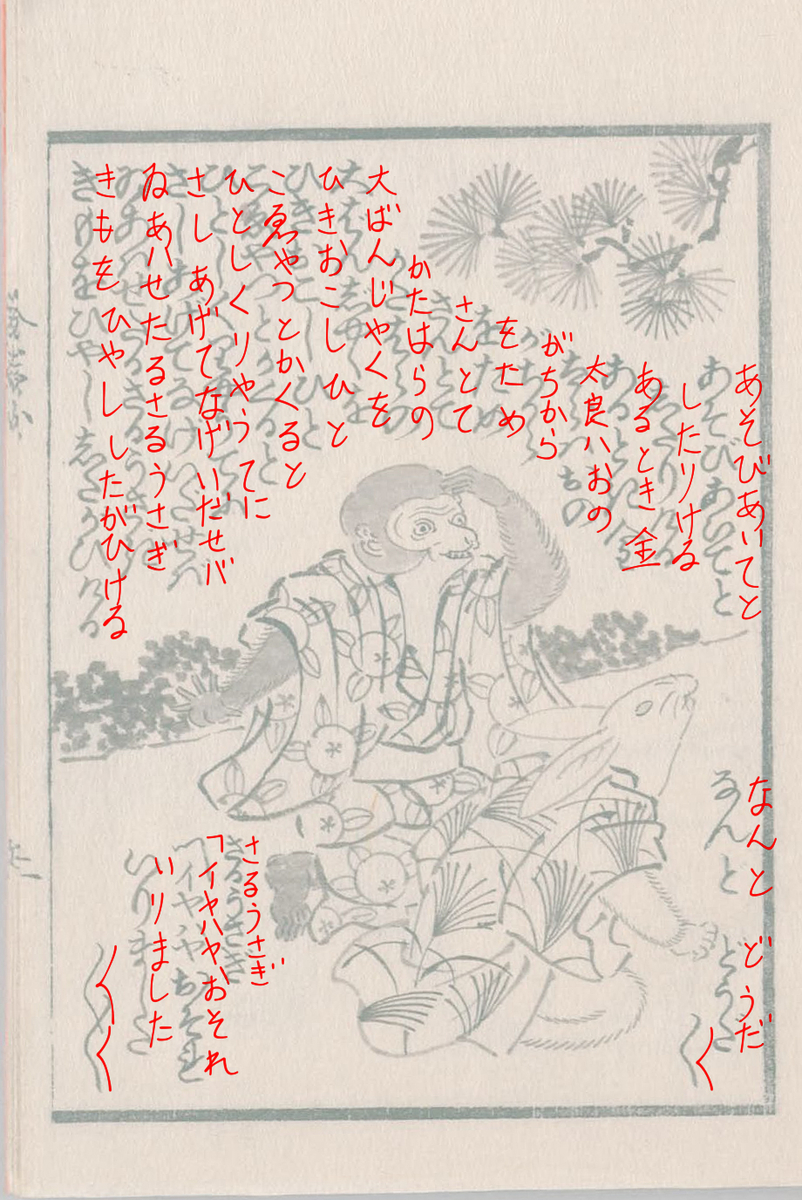 あそびあいてと
したりける
あるとき金
太良ハおの
がちから
をため
さんとて
かたはらの
大ばんじやくを
ひきおこしひと
こゑやつとかくると
ひとしくりやうてに
さしあげてなげいだせバ
ゐあハせたるさるうさぎ
きもをひやししたがひける
なんと どうだ
〱
さるうさぎ
「イヤハヤおそれ
いりました
〱〱